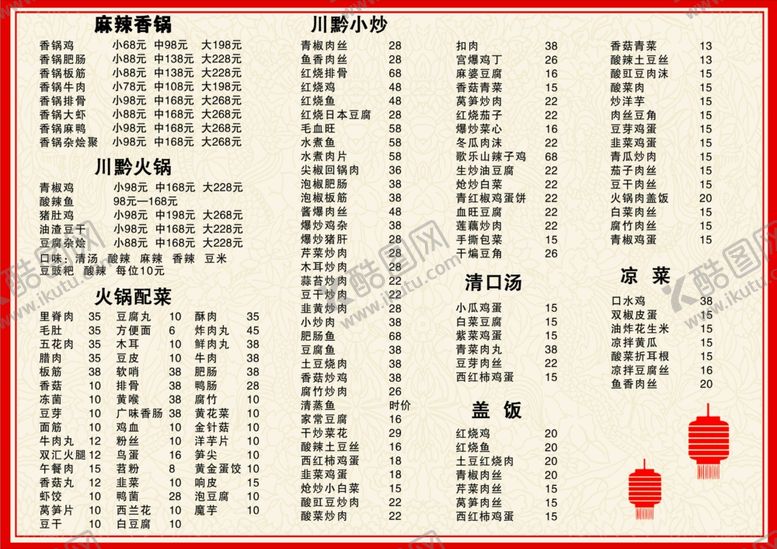 麻辣香锅
香锅鸡 小68元 中98元 大198元
香锅肥肠 小88元 中138元 大228元
香锅板筋 小88元 中138元 大228元
香锅牛肉 小78元 中108元 大198元
香锅排骨 小98元 中168元 大268元
香锅大虾 小88元 中168元 大268元
香锅麻鸭 小98元 中168元 大268元
香锅杂烩聚 小98元 中168元 大268元
川黔火锅
青椒鸡 小98元 中168元 大228元
酸辣鱼 98元—168元
猪肚鸡 小98元 中198元 大268元
油渣豆干 小98元 中168元 大228元
豆腐杂烩 小88元 中168元 大228元
口味：清汤 酸辣 麻辣 香辣 豆米
豆豉粑 酸辣 每位10元
火锅配菜
里脊肉 35 豆腐丸 10 酥肉 35
毛肚 35 方便面 6 炸肉丸 45
五花肉 35 木耳 10 鲜肉丸 38
腊肉 35 豆皮 10 牛肉 38
板筋 38 软哨 38 肥肠 38
香菇 10 排骨 38 鸭肠 28
冻菌 10 黄喉 38 腐竹 10
豆芽 10 广味香肠 38 黄花菜 10
面筋 10 鸡血 10 金针菇 10
牛肉丸 12 粉丝 10 洋芋片 10
双汇火腿 12 鸟蛋 16 笋尖 10
午餐肉 15 苕粉 8 黄金蛋饺 10
香菇丸 12 韭菜 10 响皮 15
虾饺 10 鸭菌 28 泡豆腐 10
莴笋片 10 西兰花 10 魔芋 10
豆干 10 白豆腐 10
川黔小炒
青椒肉丝 28
鱼香肉丝 28
红烧排骨 68
红烧鸡 48
红烧鱼 48
红烧日本豆腐 28
毛血旺 58
水煮鱼 58
水煮肉片 58
尖椒回锅肉 36
泡椒肥肠 38
泡椒板筋 38
酱爆肉丝 48
爆炒鸡杂 38
爆炒猪肝 28
芹菜炒肉 22
木耳炒肉 22
蒜苔炒肉 22
豆干炒肉 22
韭黄炒肉 28
小炒肉 38
肥肠鱼 68
豆腐鱼 38
土豆烧肉 38
香菇炒鸡 38
腐竹炒肉 26
清蒸鱼 时价
家常豆腐 16
干炒菜花 29
酸辣土豆丝 16
西红柿鸡蛋 18
韭菜鸡蛋 18
炝炒小白菜 15
豆豉炒肉 22
酸菜炒肉 22
扣肉 38
宫爆鸡丁 26
麻婆豆腐 16
香菇青菜 15
莴笋炒肉 22
红烧茄子 22
爆炒菜心 16
冬瓜肉沫 22
歌乐山辣子鸡 68
生炒油豆腐 22
炝炒白菜 15
青红椒鸡蛋饼 22
血旺豆腐 22
莲藕炒肉 22
手撕包菜 15
干煸豆角 26
清口汤
小瓜鸡蛋 15
白菜豆腐 15
紫菜鸡蛋 15
青菜肉丸 38
豆芽肉丝 22
西红柿鸡蛋 15
盖 饭
红烧鸡 20
红烧鱼 20
土豆红烧肉 20
青椒肉丝 20
芹菜肉丝 15
莴笋肉丝 15
西红柿鸡蛋 15
香菇青菜 13
酸辣土豆丝 13
酸豇豆肉沫 15
酸菜肉 15
炒洋芋 15
肉丝豆角 15
豆芽鸡蛋 15
韭菜鸡蛋 15
青瓜炒肉 15
茄子肉丝 15
豆干肉丝 15
火锅肉盖饭 20
白菜肉丝 15
腐竹肉丝 15
青椒鸡蛋 15
凉 菜
口水鸡 38
双椒皮蛋 15
油炸花生米 15
凉拌黄瓜 15
酸菜折耳根 15
凉拌豆腐丝 16
鱼香肉丝 20